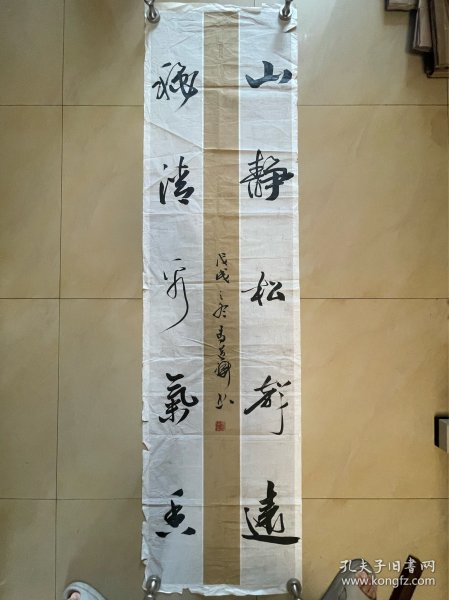 山靜松聲遠
秋清泉氣香
戊戌之冬
孔夫子旧书网
www.kongfz.com